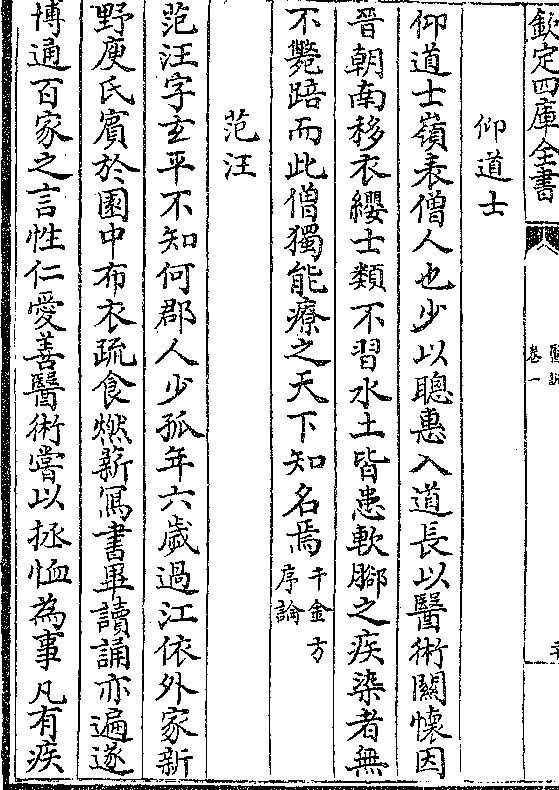 欽定四庫全書
醫說
卷一
仰道士
仰道士嶺表僧人也少以聰惠入道長以醫術關懷因
晉朝南移衣纓士類不習水土皆患軟腳之疾染者無
不斃踣而此僧獨能療之天下知名焉千金方
序論
范汪
范汪字玄平不知何郡人少孤年六歲過江依外家新
野庾氏賓於園中布衣疏食燃薪寫書畢讀誦亦遍遂
博通百家之言性仁愛善醫術嘗以拯恤為事凡有疾